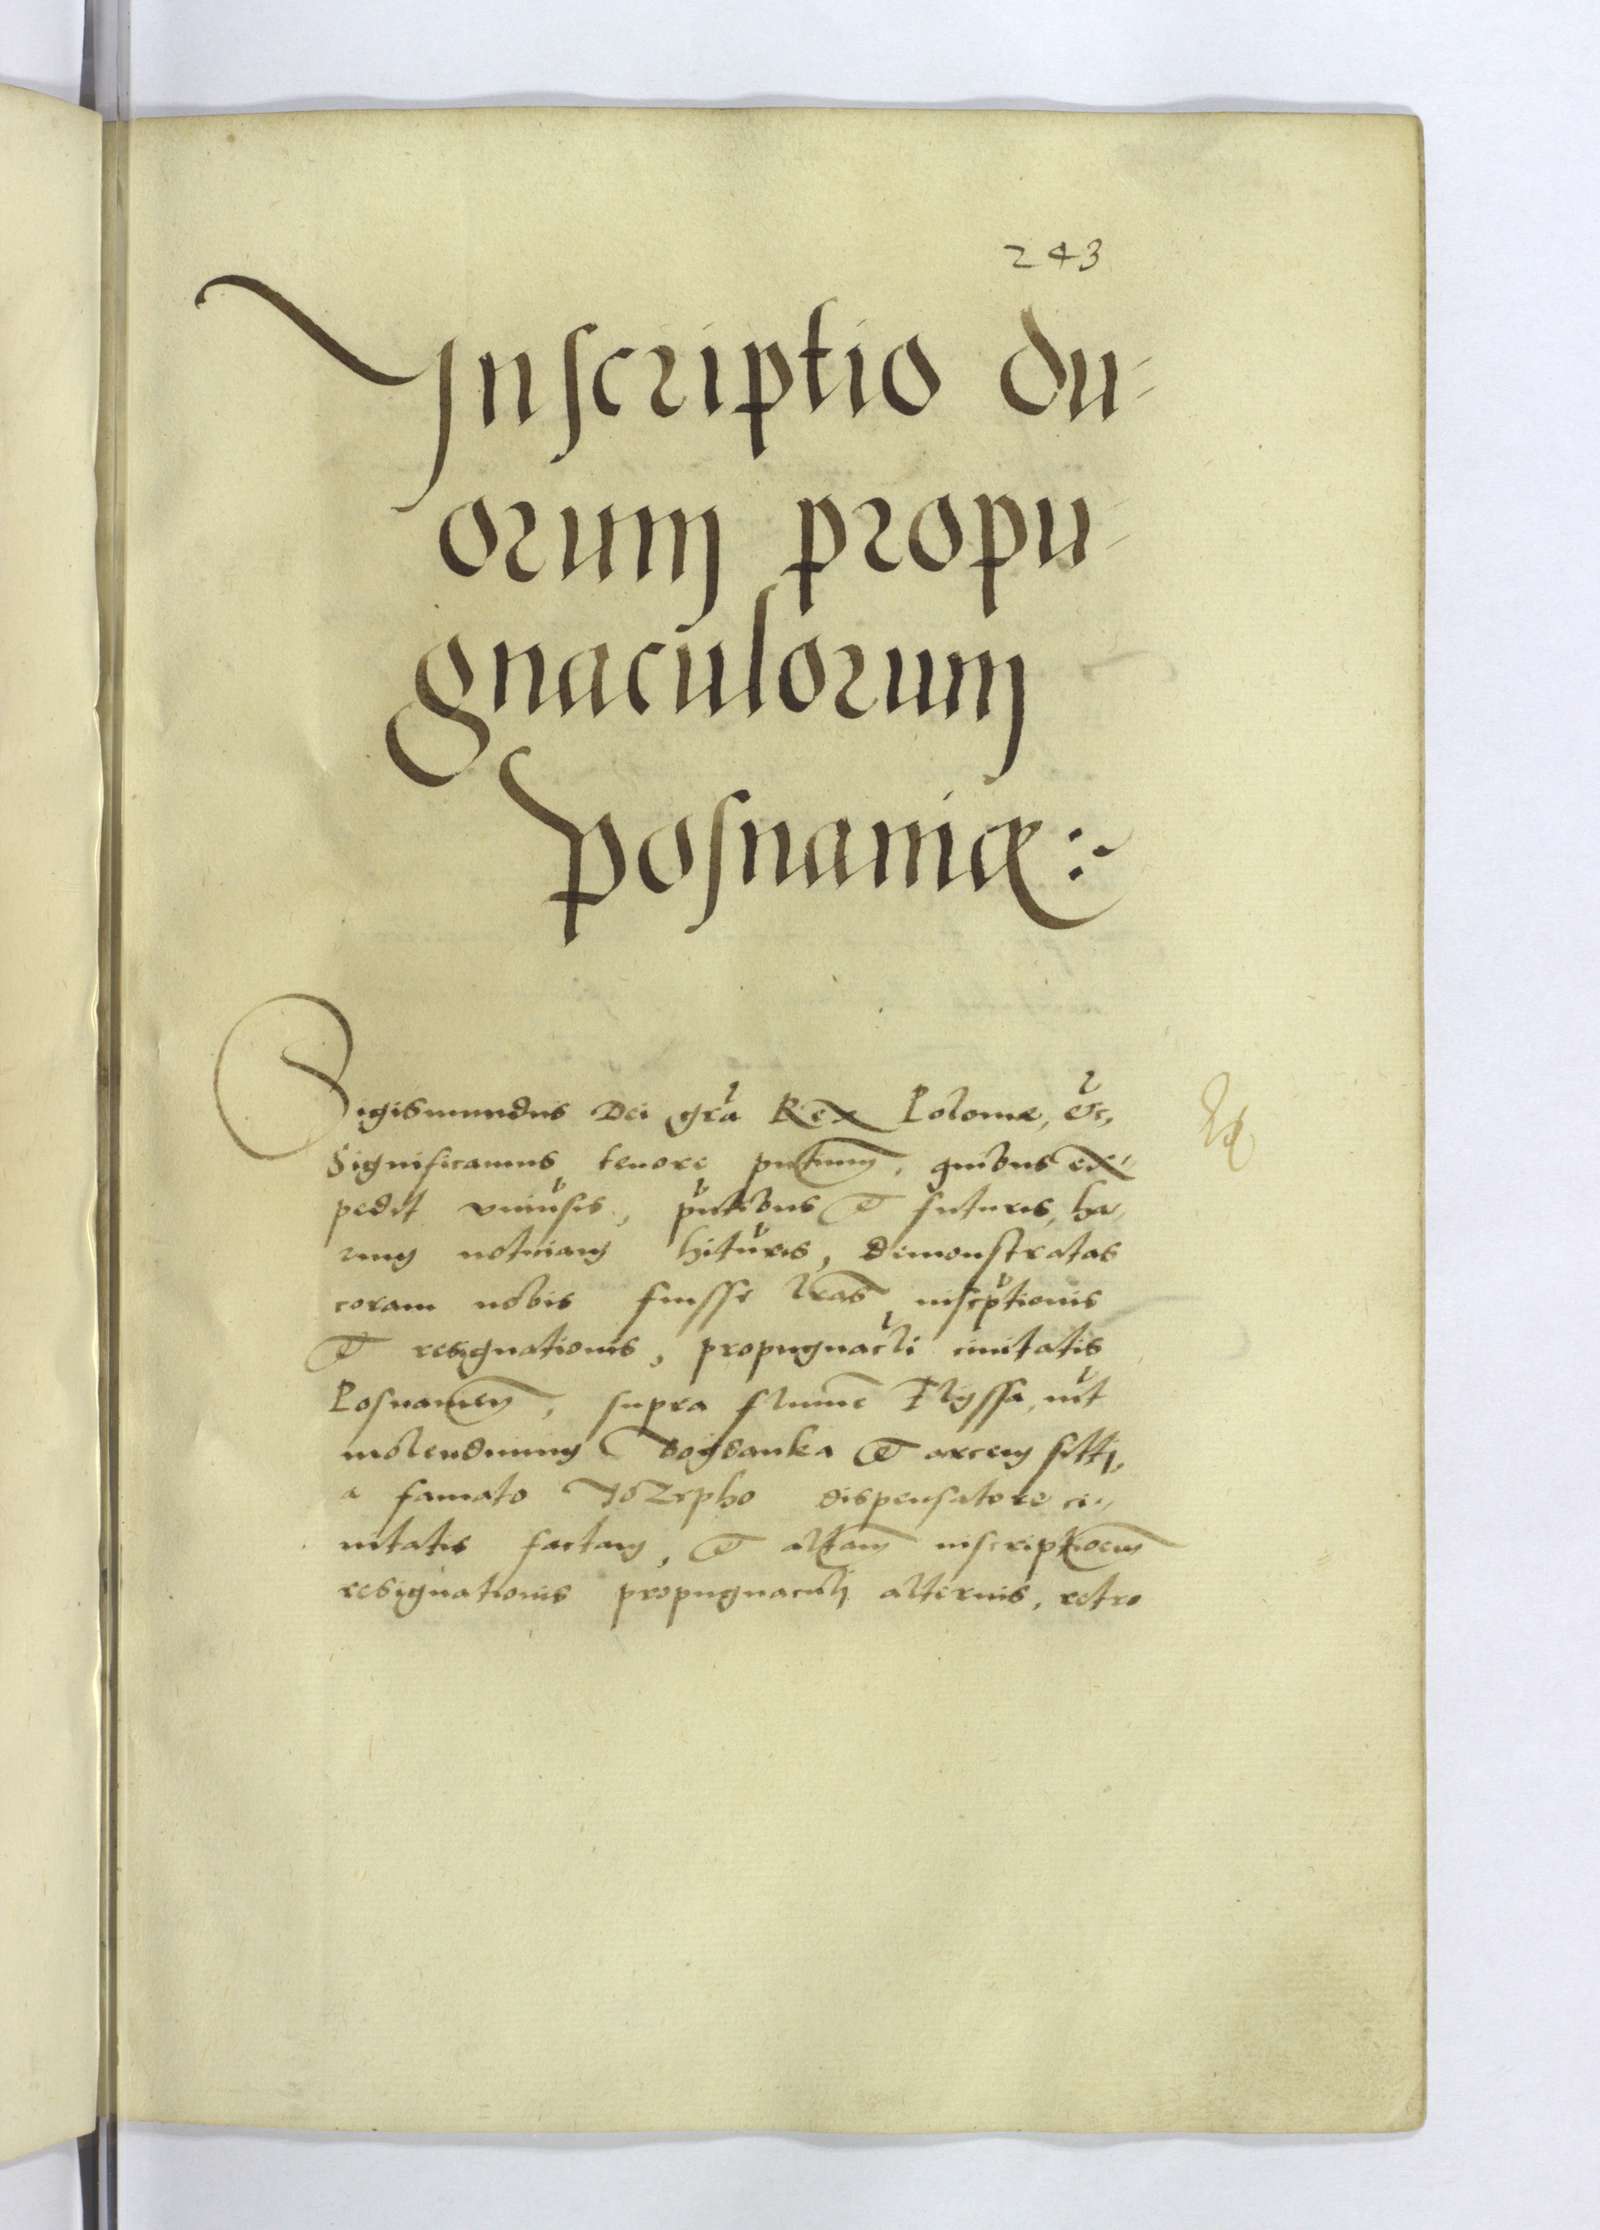 243
Inscriptio du-
orum propu-
gnaculorum
Posnaniæ:~
Sigismundus Dei gra Rex Polonie, etc,
Significamus tenore pntium, quibus ex-
pedit uniusis, pntibus et futuris, ha-
rum noticiam hituris, demonstratas
coram nobis fuisse lras inscptionis
et resignationis, propugnacli civitatis
Posnanien, supra flumē Flyssa, int
molendinum Bogdanka et arcem siti,
a famato Jozepho dispensatore ci-
vitatis factam, et altam inscriptioem
resignationis propugnaculi alterius, retro